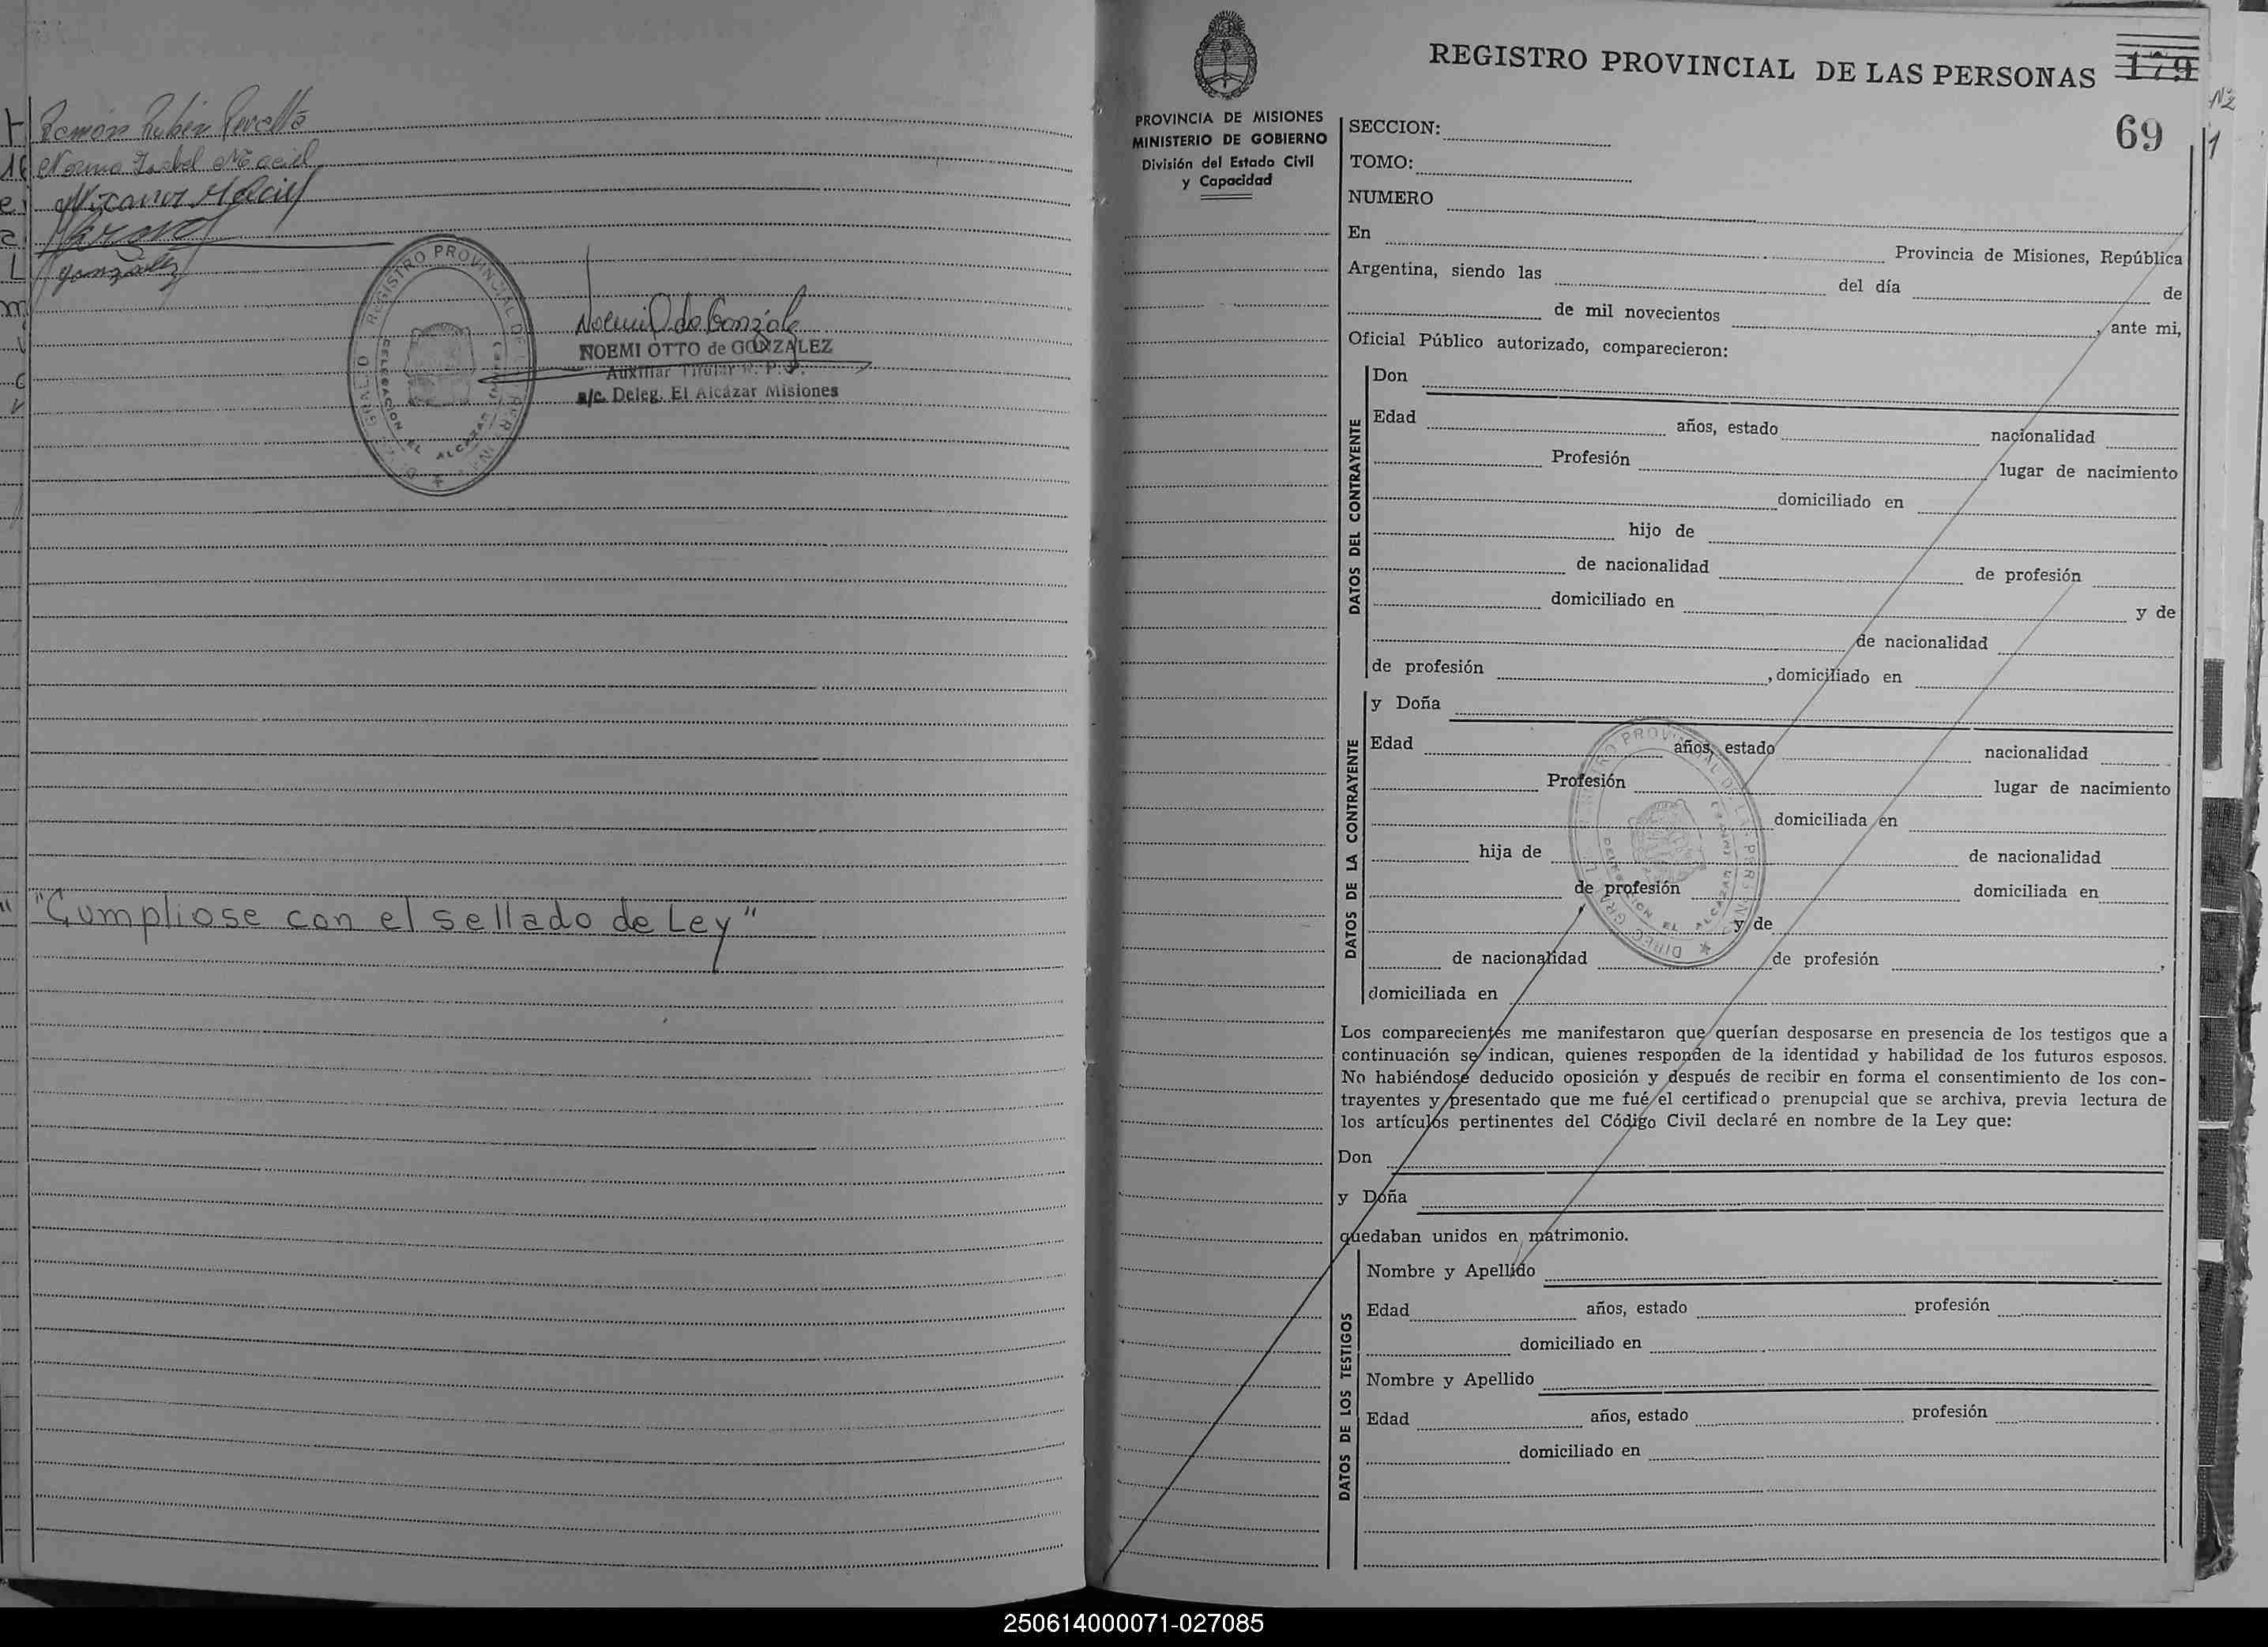 Ramón Rubén Peralta
Norma Isabel Maciel
Nicanor Maciel
González
REGISTRO PROVINCIAL DE
DELEGACION EL ALCAZAR
Noemi O de Gonzalez
NOEMI OTTO de GONZALEZ
Auxiliar Titular R. P. P.
a/c. Deleg. El Alcázar Misiones
"Cumpliose con el sellado de Ley"
PROVINCIA DE MISIONES
MINISTERIO DE GOBIERNO
División del Estado Civil
y Capacidad
REGISTRO PROVINCIAL DE LAS PERSONAS 179
69
SECCION:
TOMO:
NUMERO
En Provincia de Misiones, República
Argentina, siendo las del día de
de mil novecientos , ante mi,
Oficial Público autorizado, comparecieron:
DATOS DEL CONTRAYENTE
Don
Edad años, estado nacionalidad
Profesión lugar de nacimiento
domiciliado en
hijo de
de nacionalidad de profesión
domiciliado en y de
de nacionalidad
de profesión , domiciliado en
DATOS DE LA CONTRAYENTE
y Doña
Edad años, estado nacionalidad
Profesión lugar de nacimiento
domiciliada en
hija de de nacionalidad
de profesión domiciliada en
y de
de nacionalidad de profesión ,
domiciliada en
Los comparecientes me manifestaron que querían desposarse en presencia de los testigos que a
continuación se indican, quienes responden de la identidad y habilidad de los futuros esposos.
No habiéndose deducido oposición y después de recibir en forma el consentimiento de los con-
trayentes y presentado que me fué el certificado prenupcial que se archiva, previa lectura de
los artículos pertinentes del Código Civil declaré en nombre de la Ley que:
Don
y Doña
quedaban unidos en matrimonio.
DATOS DE LOS TESTIGOS
Nombre y Apellido
Edad años, estado profesión
domiciliado en
Nombre y Apellido
Edad años, estado profesión
domiciliado en
250614000071-027085